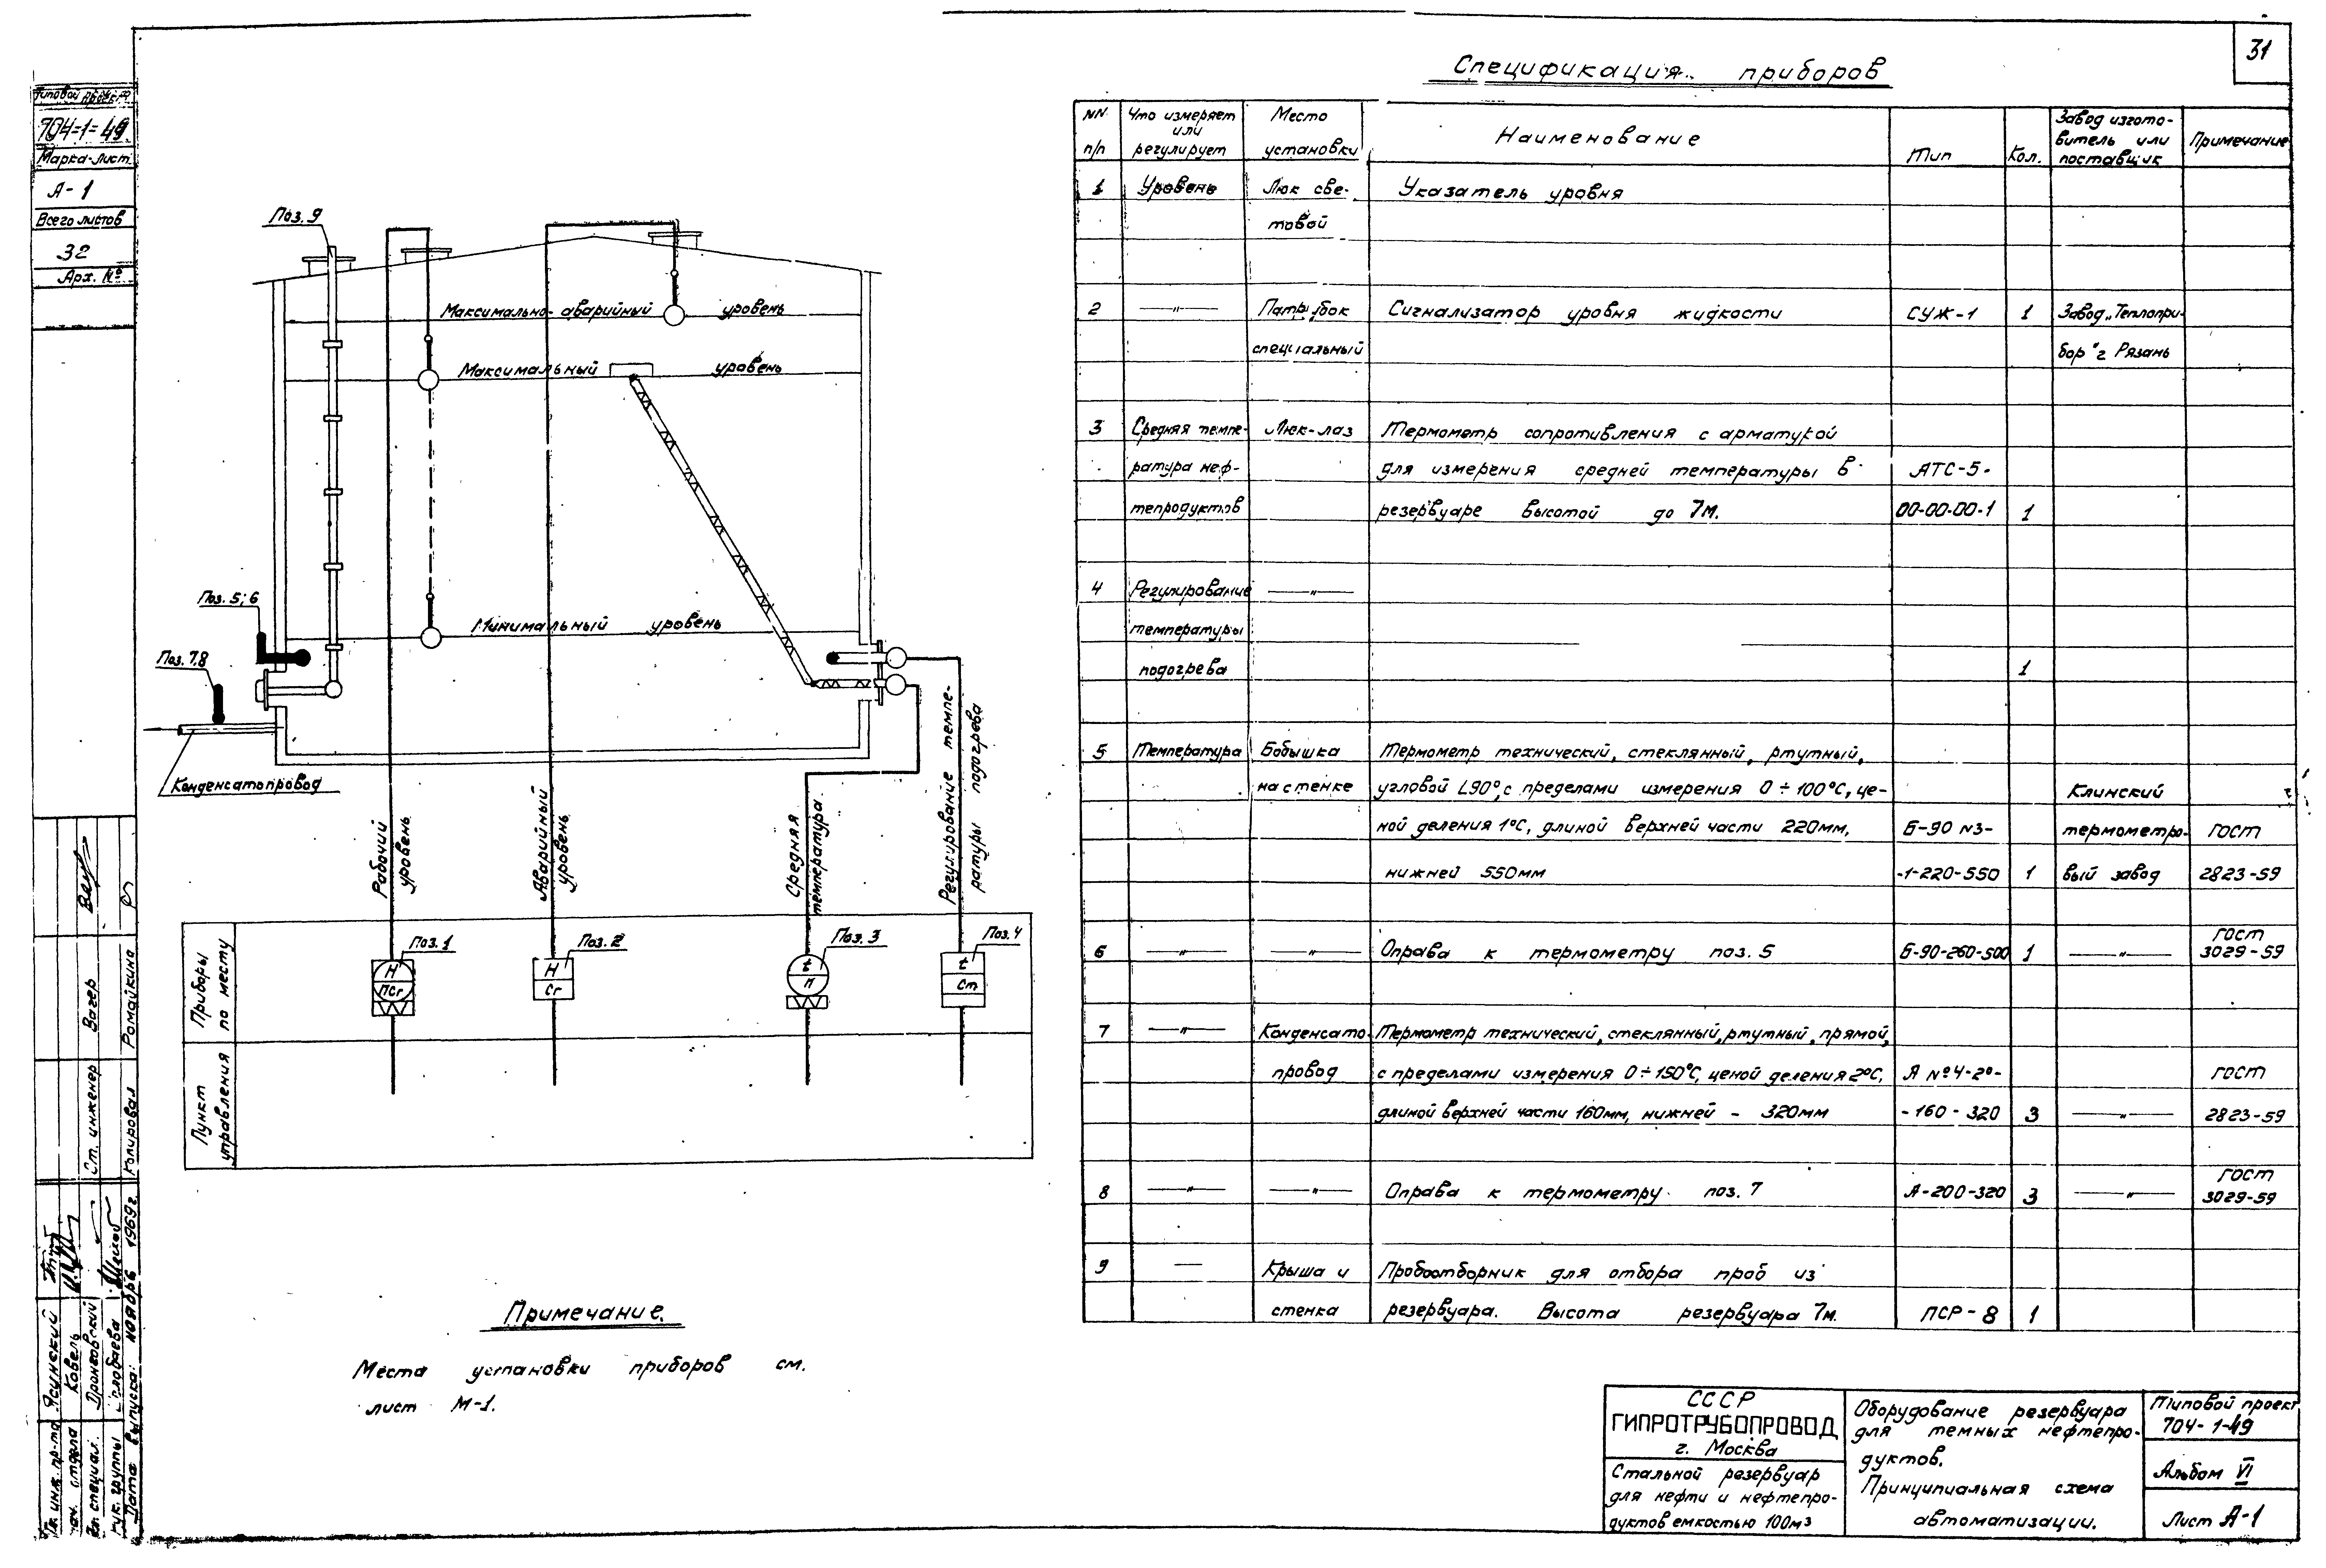 31
Типовой проект
704-1-49
Марка-лист
А-1
Всего листов
32
Арх. №
Поз. 9
Максимально-аварийный уровень
Максимальный уровень
Минимальный уровень
Поз. 5; 6
Поз. 7.8
Конденсатопровод
Рабочий
уровень
Аварийный
уровень
Средняя
температура
Регулирование темпе-
ратуры подогрева
Приборы
по месту
Поз. 1
Н
ПСг
Поз. 2
Н
Сг
Поз. 3
t
П
Поз. 4
t
Ст
Пункт
управления
Примечание.
Места установки приборов см.
лист М-1.
Спецификация приборов
NN п/п
Что измеряет или регулирует
Место установки
Наименование
Тип
Кол.
Завод изгото-
витель или
поставщик
Примечание
1 Уровень Люк све- Указатель уровня
товой
2 —"— Патрубок Сигнализатор уровня жидкости СУЖ-1 1 Завод „Теплопри-
специальный бор" г Рязань
3 Средняя темпе- Люк-лаз Термометр сопротивления с арматурой
ратура неф- для измерения средней температуры в АТС-5-
тепродуктов резервуаре высотой до 7м. 00-00-00-1 1
4 Регулирование —"—
температуры
подогрева 1
5 Температура Бобышка Термометр технический, стеклянный, ртутный,
на стенке угловой L90°, с пределами измерения 0 ÷ 100°С, це- Клинский
ной деления 1°С, длиной верхней части 220мм, Б-90 №3- термометро- ГОСТ
нижней 550мм -1-220-550 1 вый завод 2823-59
6 —"— —"— Оправа к термометру поз. 5 Б-90-260-500 1 —"— ГОСТ 3029-59
7 —"— Конденсато- Термометр технический, стеклянный, ртутный, прямой,
провод с пределами измерения 0÷150°С, ценой деления 2°С, А №4-2°- ГОСТ
длиной верхней части 160мм, нижней - 320мм -160-320 3 —"— 2823-59
8 —"— —"— Оправа к термометру поз. 7 А-200-320 3 —"— ГОСТ 3029-59
9 — Крыша и Пробоотборник для отбора проб из
стенка резервуара. Высота резервуара 7м. ПСР-8 1
СССР
ГИПРОТРУБОПРОВОД
г. Москва
Стальной резервуар
для нефти и нефтепро-
дуктов емкостью 100м³
Оборудование резервуара
для темных нефтепро-
дуктов.
Принципиальная схема
автоматизации.
Типовой проект
704-1-49
Альбом VI
Лист А-1
инж. пр-та Ясунский
отдела Ковель
специал. Дранговский
рук. группы
Дата выпуска: ноябрь 1969г.
Ст. инженер Вагер
Копировал Ромайкина